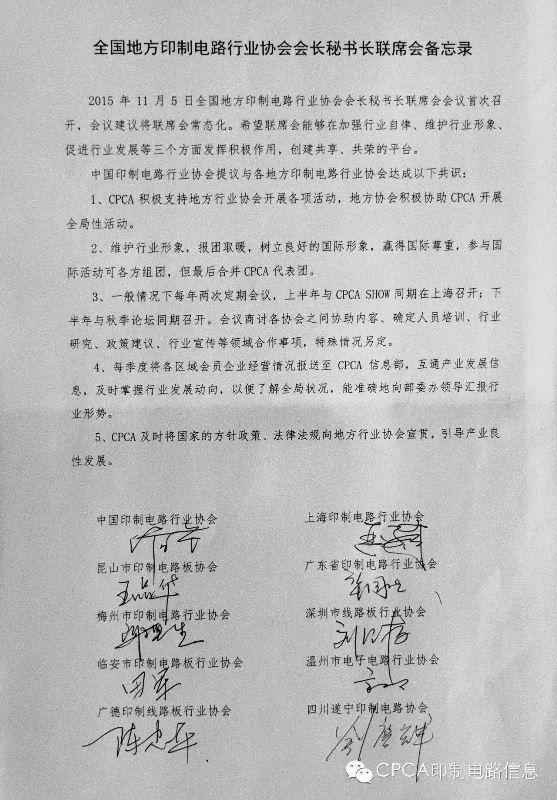 全国地方印制电路行业协会会长秘书长联席会备忘录
2015 年 11 月 5 日全国地方印制电路行业协会会长秘书长联席会会议首次召
开，会议建议将联席会常态化。希望联席会能够在加强行业自律、维护行业形象、
促进行业发展等三个方面发挥积极作用，创建共享、共荣的平台。
中国印制电路行业协会提议与各地方印制电路行业协会达成以下共识：
1、CPCA 积极支持地方行业协会开展各项活动，地方协会积极协助 CPCA 开展
全局性活动。
2、维护行业形象，报团取暖，树立良好的国际形象，赢得国际尊重，参与国
际活动可各方组团，但最后合并 CPCA 代表团。
3、一般情况下每年两次定期会议，上半年与 CPCA SHOW 同期在上海召开；下
半年与秋季论坛同期召开。会议商讨各协会之间协助内容、确定人员培训、行业
研究、政策建议、行业宣传等领域合作事项，特殊情况另定。
4、每季度将各区域会员企业经营情况报送至 CPCA 信息部，互通产业发展信
息，及时掌握行业发展动向，以便了解全局状况，能准确地向部委办领导汇报行
业形势。
5、CPCA 及时将国家的方针政策、法律法规向地方行业协会宣贯，引导产业良
性发展。
中国印制电路行业协会 上海印制电路行业协会
昆山市印制电路板协会 广东省印制电路行业协会
梅州市印制电路行业协会 深圳市线路板行业协会
临安市印制电路板行业协会 温州市电子电路行业协会
广德印制线路板行业协会 四川遂宁印制电路协会
陈忠华
CPCA印制电路信息